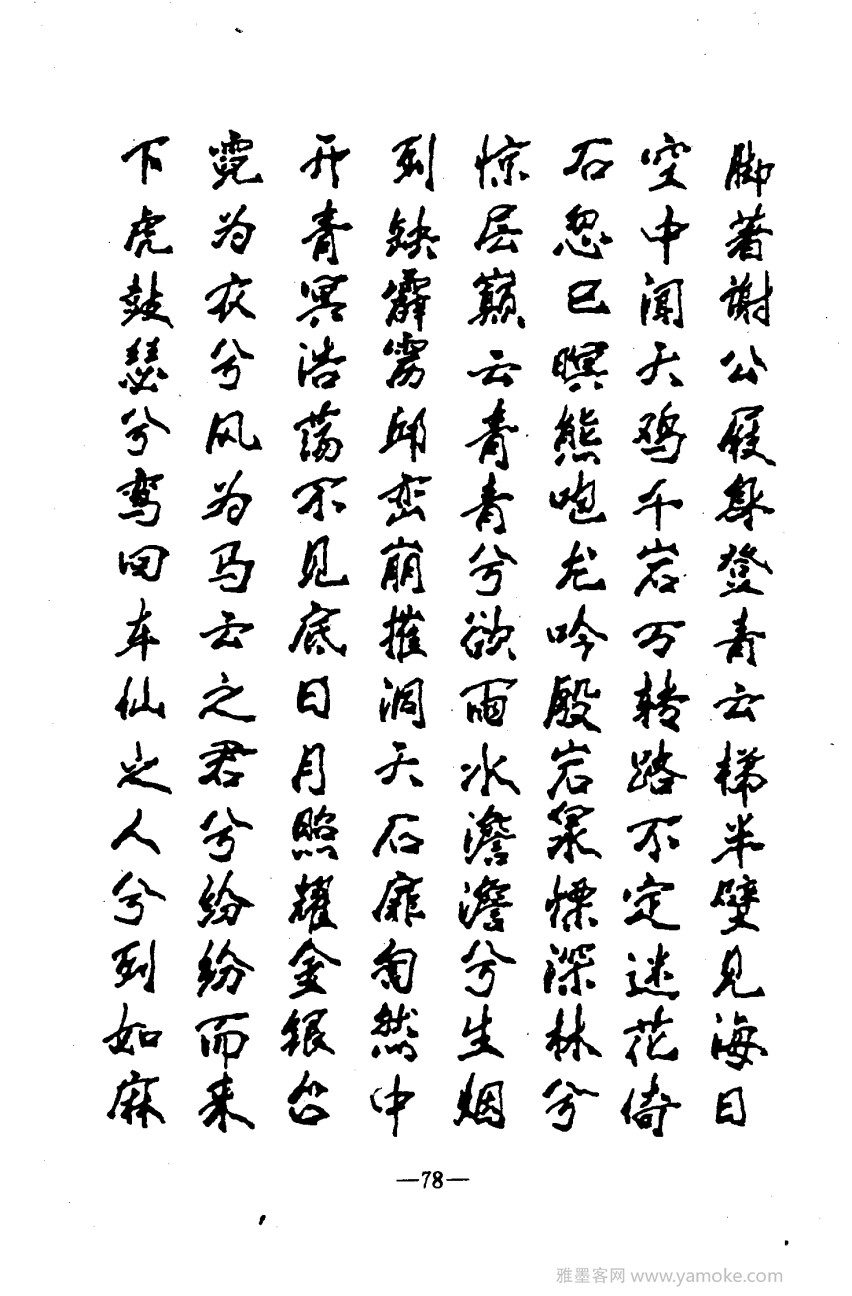 脚著谢公屐身登青云梯半壁见海日
空中闻天鸡千岩万转路不定迷花倚
石忽已暝熊咆龙吟殷岩泉慄深林兮
惊层巅云青青兮欲雨水澹澹兮生烟
列缺霹雳邱峦崩摧洞天石扉訇然中
开青冥浩荡不见底日月照耀金银台
霓为衣兮风为马云之君兮纷纷而来
下虎鼓瑟兮鸾回车仙之人兮列如麻
—78—
雅墨客网 www.yamoke.com